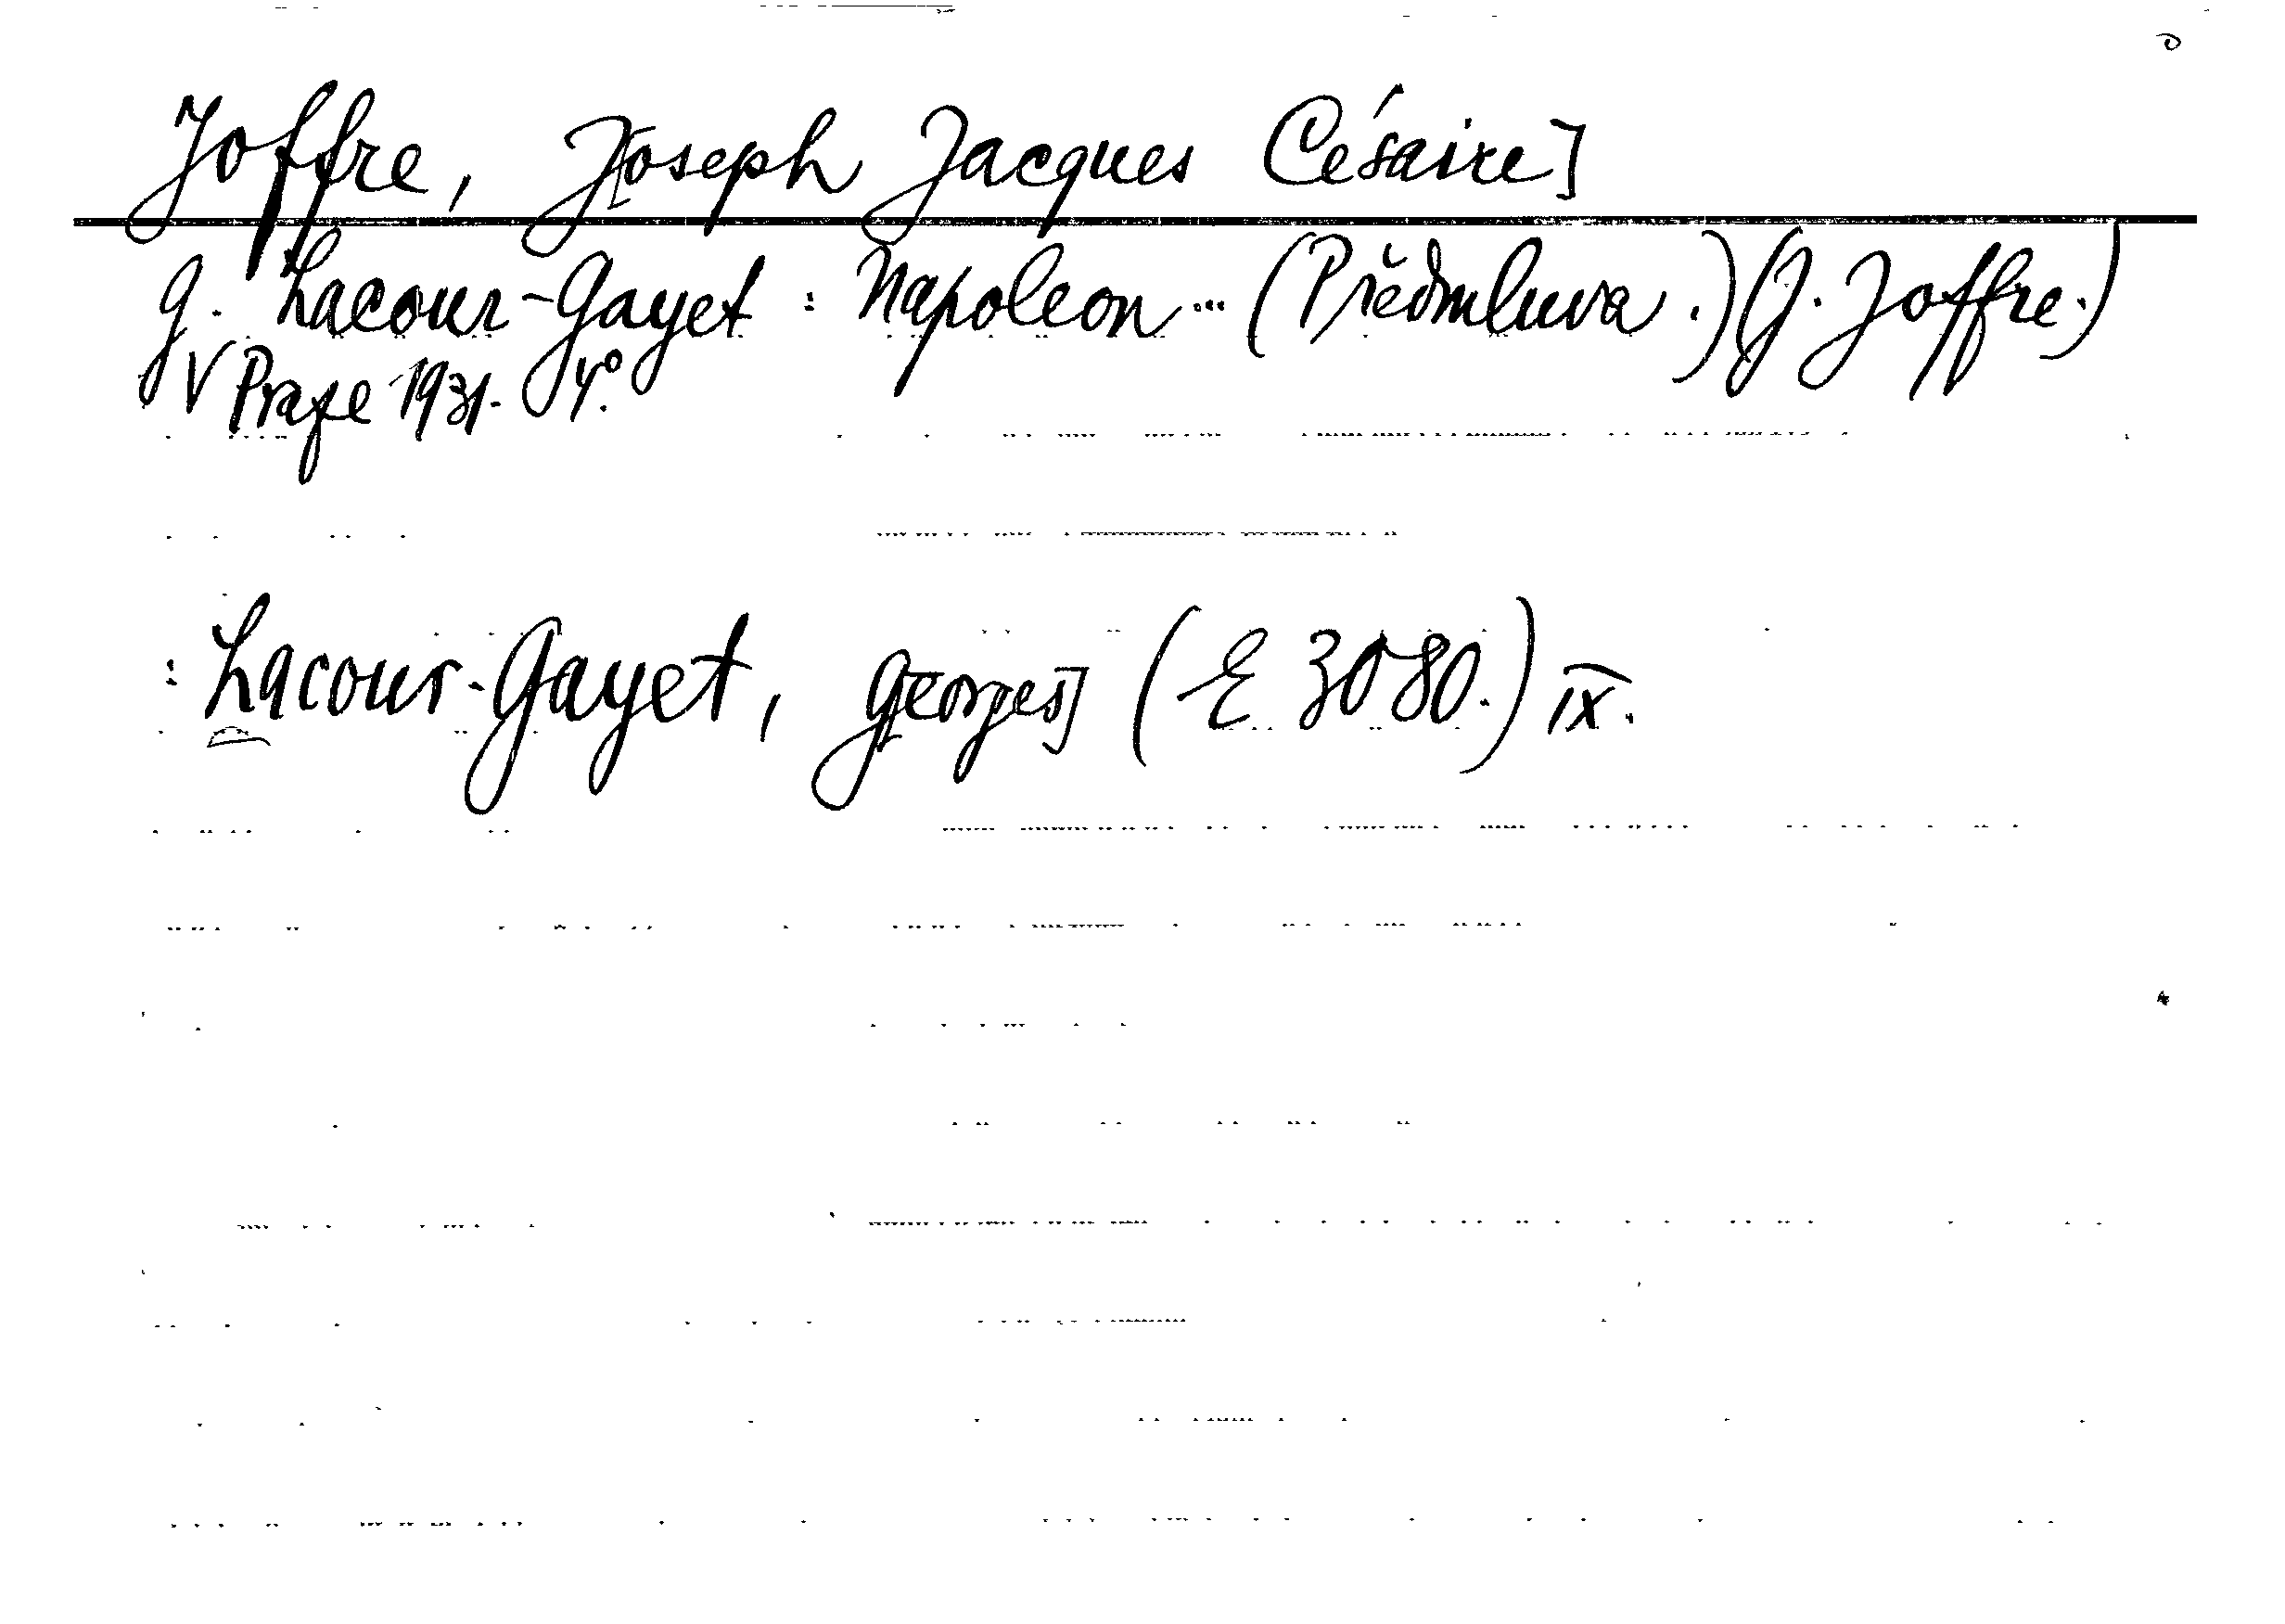 Joffre, J[oseph Jacques Césaire]
G. Lacour-Gayet: Napoleon... (Předmluva.) (J. Joffre.)
V Praze 1931. 4°.
: Lacour-Gayet, G[eorges] (E 3080.) IX.